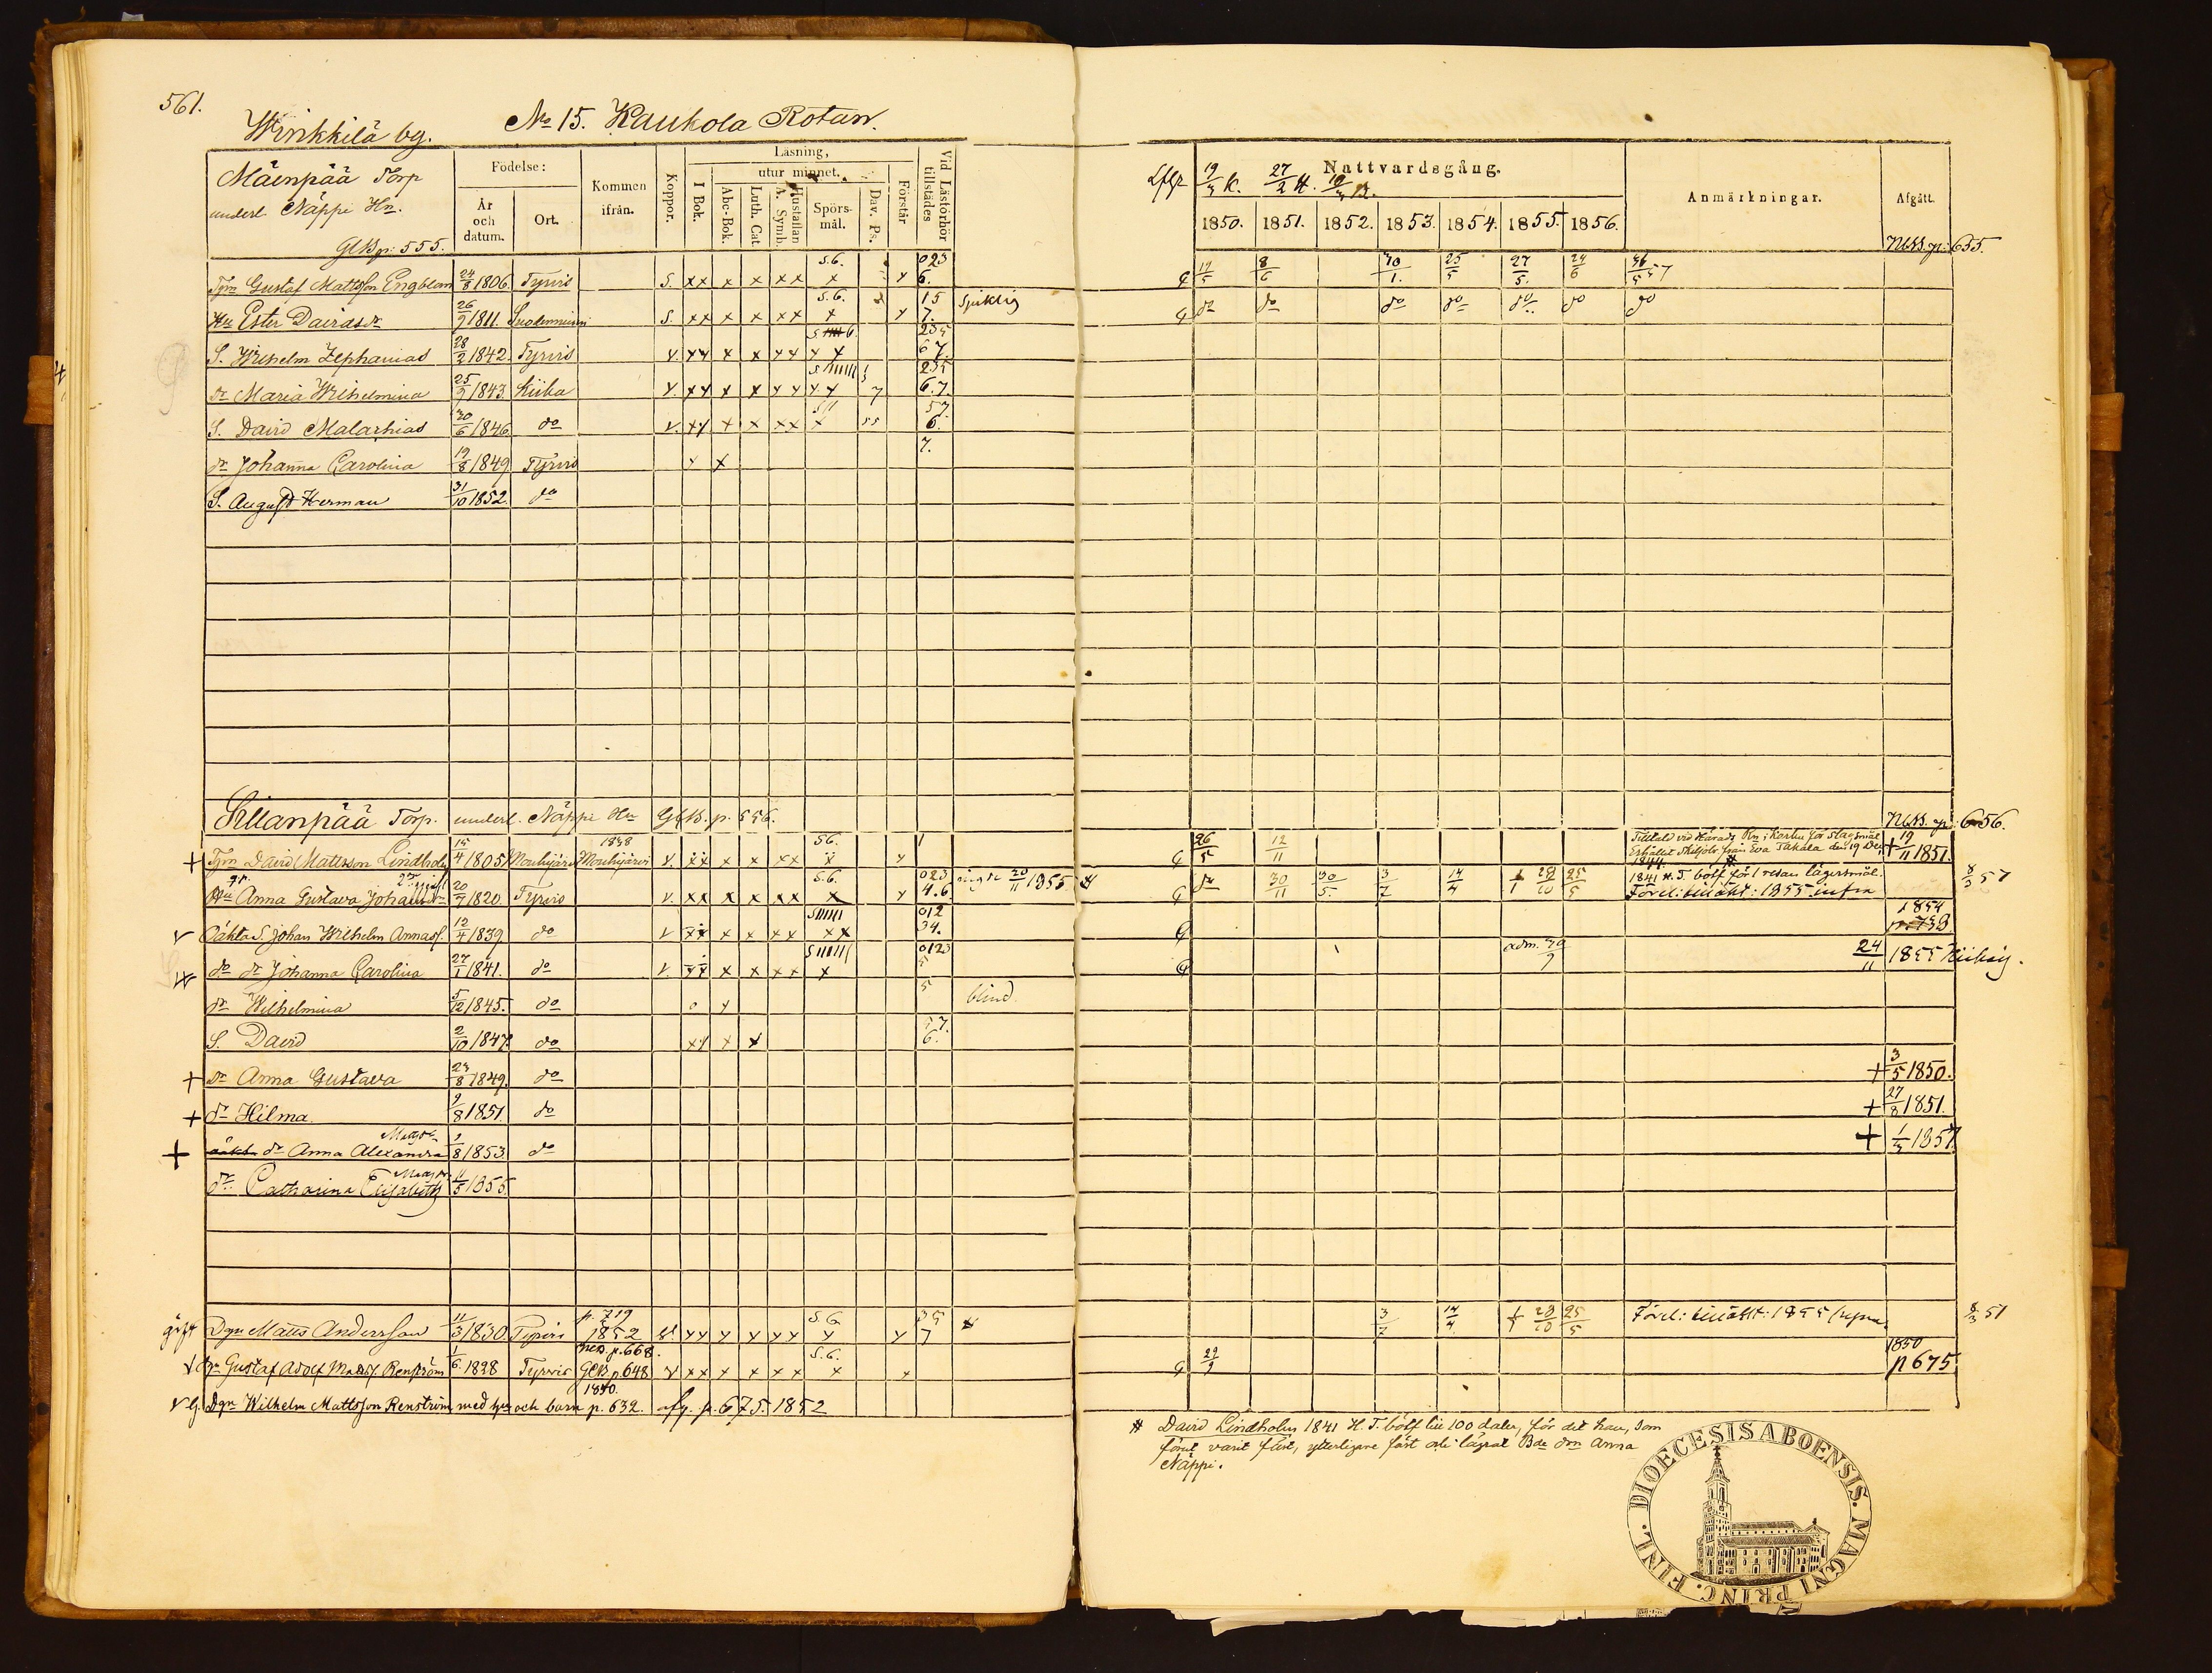 561.
Winkkilä by. No 15. Kaukola Rotan.
Mäenpää Torp
underl. Näppi Hn.
GlB p: 555.
Födelse:
År och datum.
Ort.
Kommen ifrån.
Koppor.
Läsning,
I Bok.
utur minnet.
Abc-Bok.
Luth. Cat
A. Symb.
Hustaflan
Spörs-mål.
Dav. Ps.
Förstår
Vid Läsförhör tillstädes
19/3 K. 27/2 H. Nattvardsgång.
1850. 1851. 1852. 1853. 1854. 1855. 1856.
Anmärkningar.
Afgått.
NlB. p: 655.
Gustaf Mattsson Engblom 24/8 1806. Tyrvis S. xx x x xx S.6. x x 023 6. 8/6 10/1. 25/5 27/5. 24/6
Hu Ester Davidsdr 26/9 1811. S. xx x x xx S.6. x x 15 7. do do do do do do do
S. Wilhelm Zephanias 28/2 1842. Tyrvis v. xx x x xx x x 235 67.
dr Maria Wilhelmina 25/9 1843. Kiika v. xx x x xx x x 7 235 6.7.
S. David Malachias 30/6 1846 do v. xx x x xx x 57. 6.
dr Johanna Carolina 19/8 1849 Tyrvis x x 7.
S. August Herman 31/10 1852. do
Sillanpää Torp. underl. Näppi Hn GlB. p. 556. NlB. p: 656.
+ David Mattsson Lindholm 15/4 1805 Mouhijärvi 1838 Mouhijärvi v. xx x x xx S6. x x 1 26/5 12/11
Tilltald vid Härads Rn i Karku för slagsmål
Erhållit skiljobr. från Eva Takala den 19 Dec
1844. # + 19/11 1851.
Hu Anna Gustava Johansdr 20/7 1820 Tyrvis v. xx x x xx S.6. x x 023 4.6. 20/11 1855 do 30/11 30/5. 3/7 14/4 1/1 28/10 25/5
1841 H. T. bötf. för 1 resan lägersmål.
Förel: till äkt: 1855 infra 8/3 57
v Oäkta S. Johan Wilhelm Annasf. 12/4 1839 do v xx x x xx xx 012 34. 1854
do dr Johanna Carolina 27/1 1841. do v. xx x x xx x 0123 5 adm. 24/11 1855
dr Wilhelmina 5/12 1845. do o x 5 blind.
S. David 2/10 1847. do xx x x 57. 6.
+ dr Anna Gustava 23/8 1849. do + 3/5 1850.
+ dr Hilma. 9/8 1851. do + 27/8 1851.
+ oäkta dr Anna Alexandra Mattsdr 8 1853 do + 1/3 1857
dr Catharina Elisabeth Mattsdr 11/5 1855.
gift Matts Andersson 11/3 1830. Tyrvis p. 719 1852 xx x x xx S.6 x x 35 7 3/7 14/4. 1/1 28/10 25/5 Förel: till äkt: 1855 supra 8/3 57
v Gustaf Adolf Mattsf. Renström 1/6 1828 Tyrvis p. 668. GlB p. 648 v xx x x xx S.6. x x 29/9 1850 p 675
v g. Dgn Wilhelm Mattsson Renström med hu och barn 1840. p. 632. afg. p. 675. 1852
# David Lindholm 1841 H. T. bötf. till 100 daler, för det han, som
förut varit fäst, ytterligare fäst och lägrat Bde dn Anna
Näppi.
DIOECESIS ABOENSIS. MAGNI PRINC. FINL.